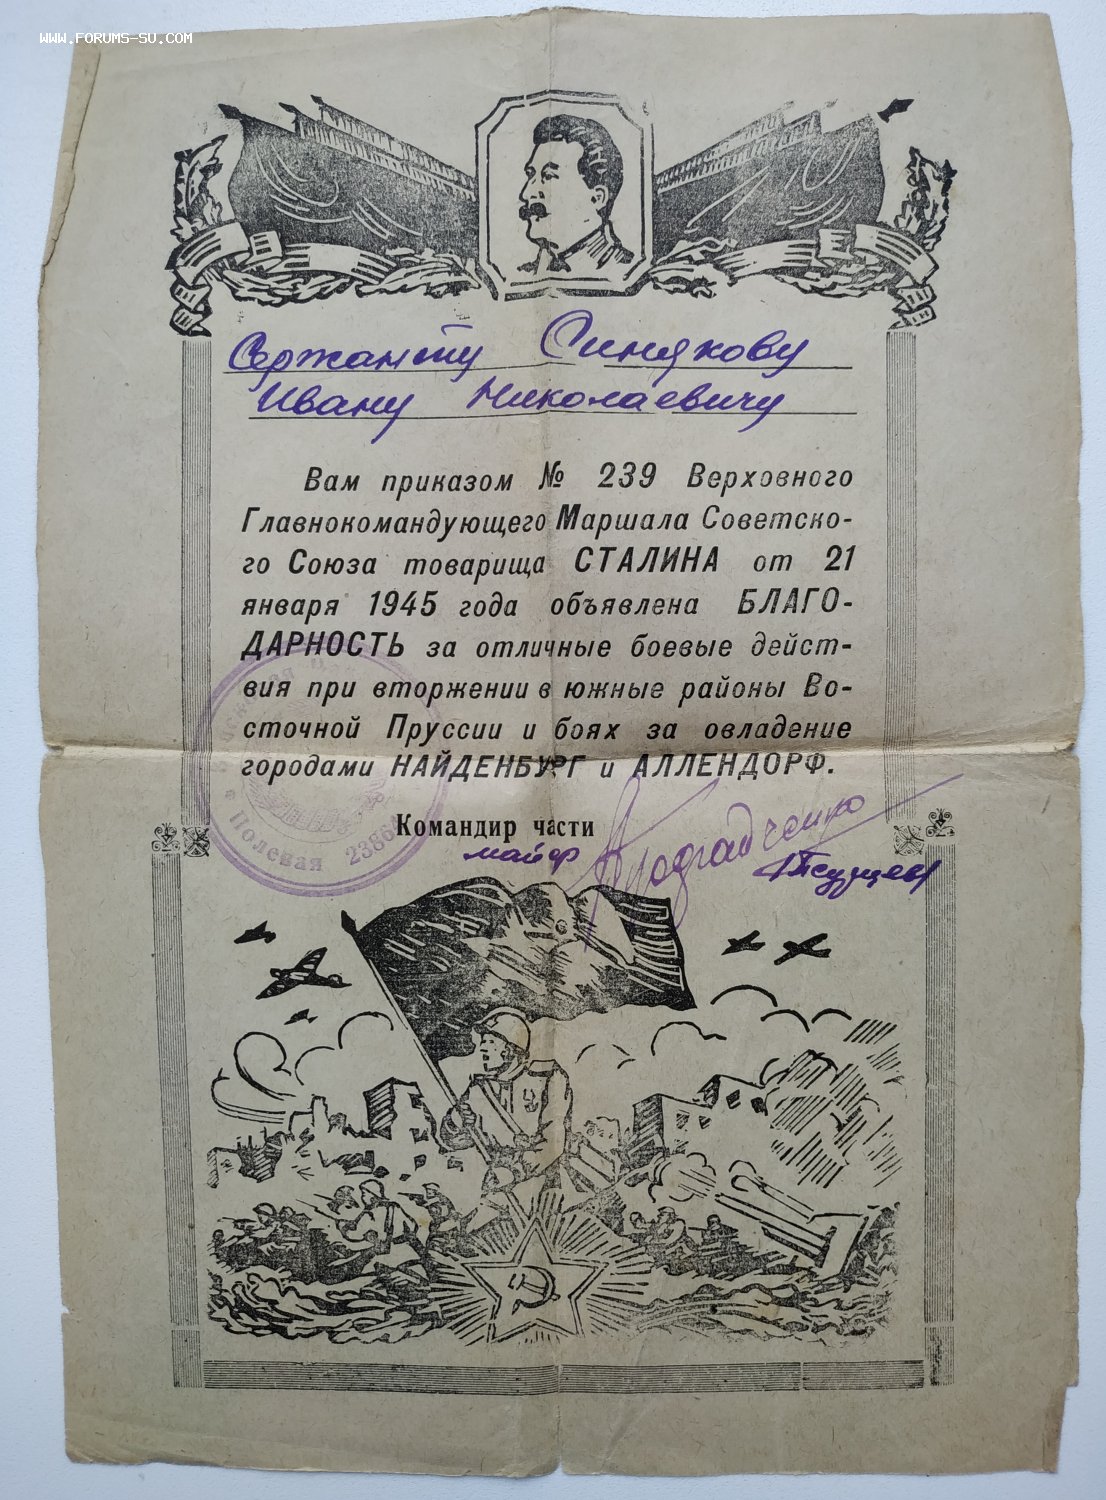 WWW.FORUMS-SU.COM
Сержанту Синякову
Ивану Николаевичу
Вам приказом № 239 Верховного
Главнокомандующего Маршала Советско-
го Союза товарища СТАЛИНА от 21
января 1945 года объявлена БЛАГО-
ДАРНОСТЬ за отличные боевые дейст-
вия при вторжении в южные районы Во-
сточной Пруссии и боях за овладение
городами НАЙДЕНБУРГ и АЛЛЕНДОРФ.
Командир части
майор
Полевая